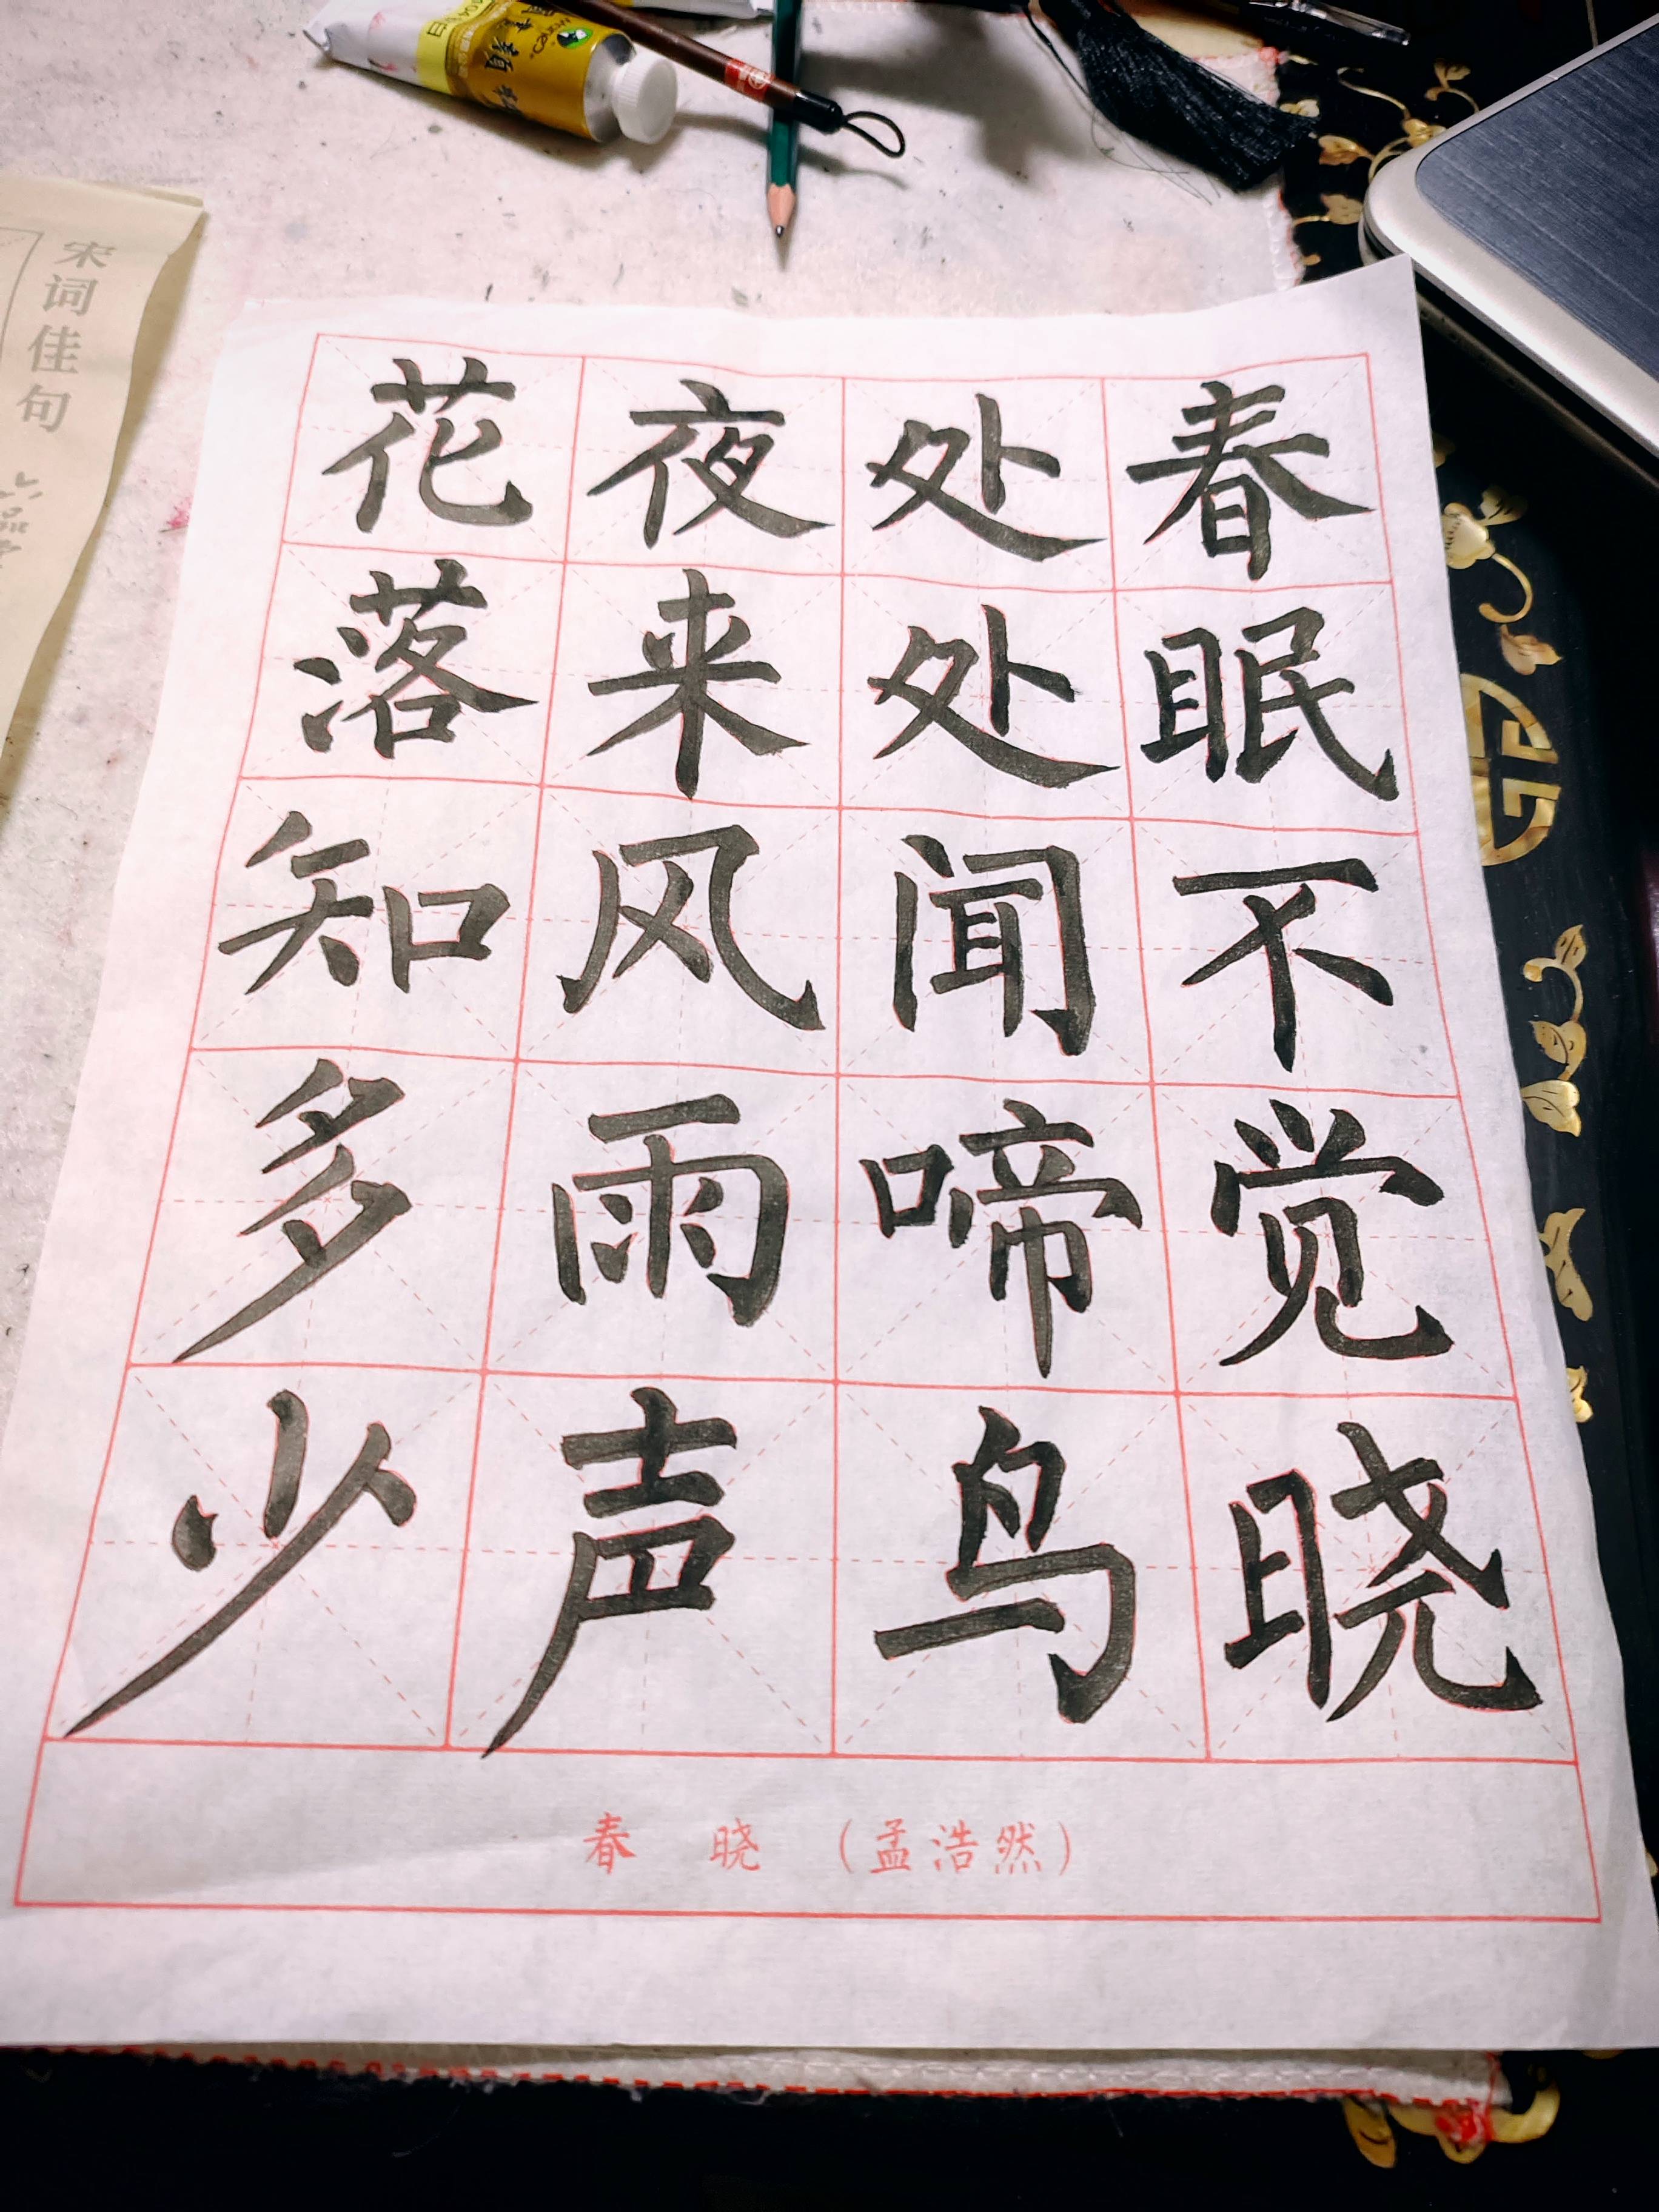 春眠不觉晓
处处闻啼鸟
夜来风雨声
花落知多少
春 晓 （孟浩然）
宋词佳句